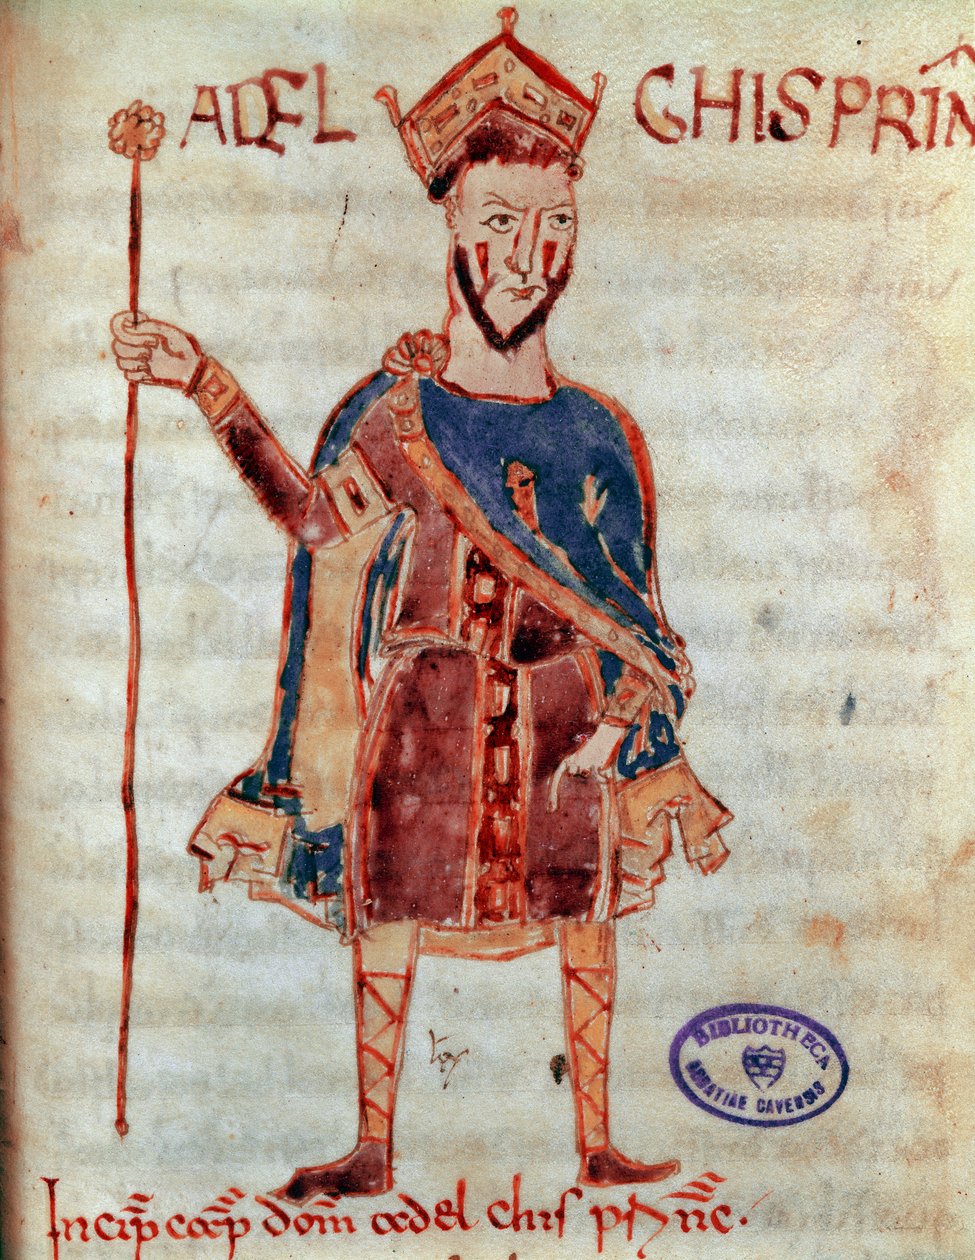 ADEL GHIS PRIN
BIBLIOTHECA
ABBATIAE CAVENSIS
Incip cap dom adel chis